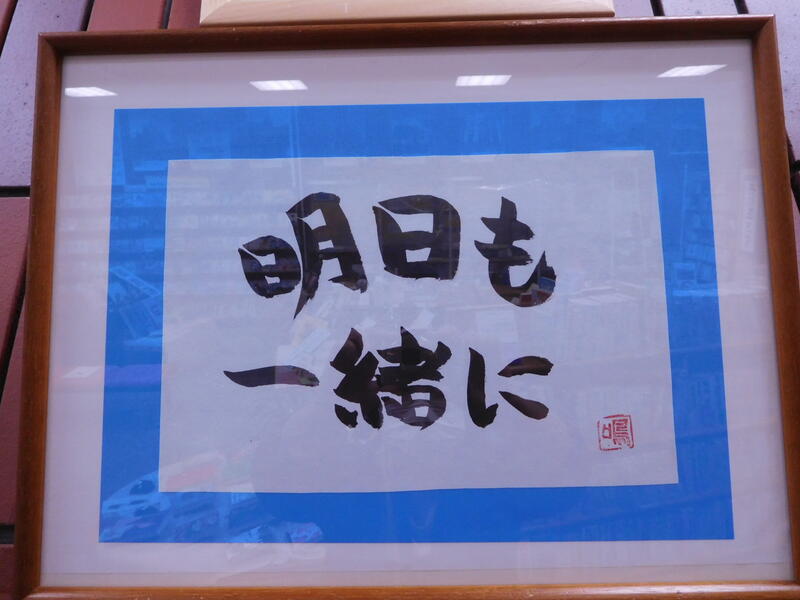 明日も
一緒に
鳴